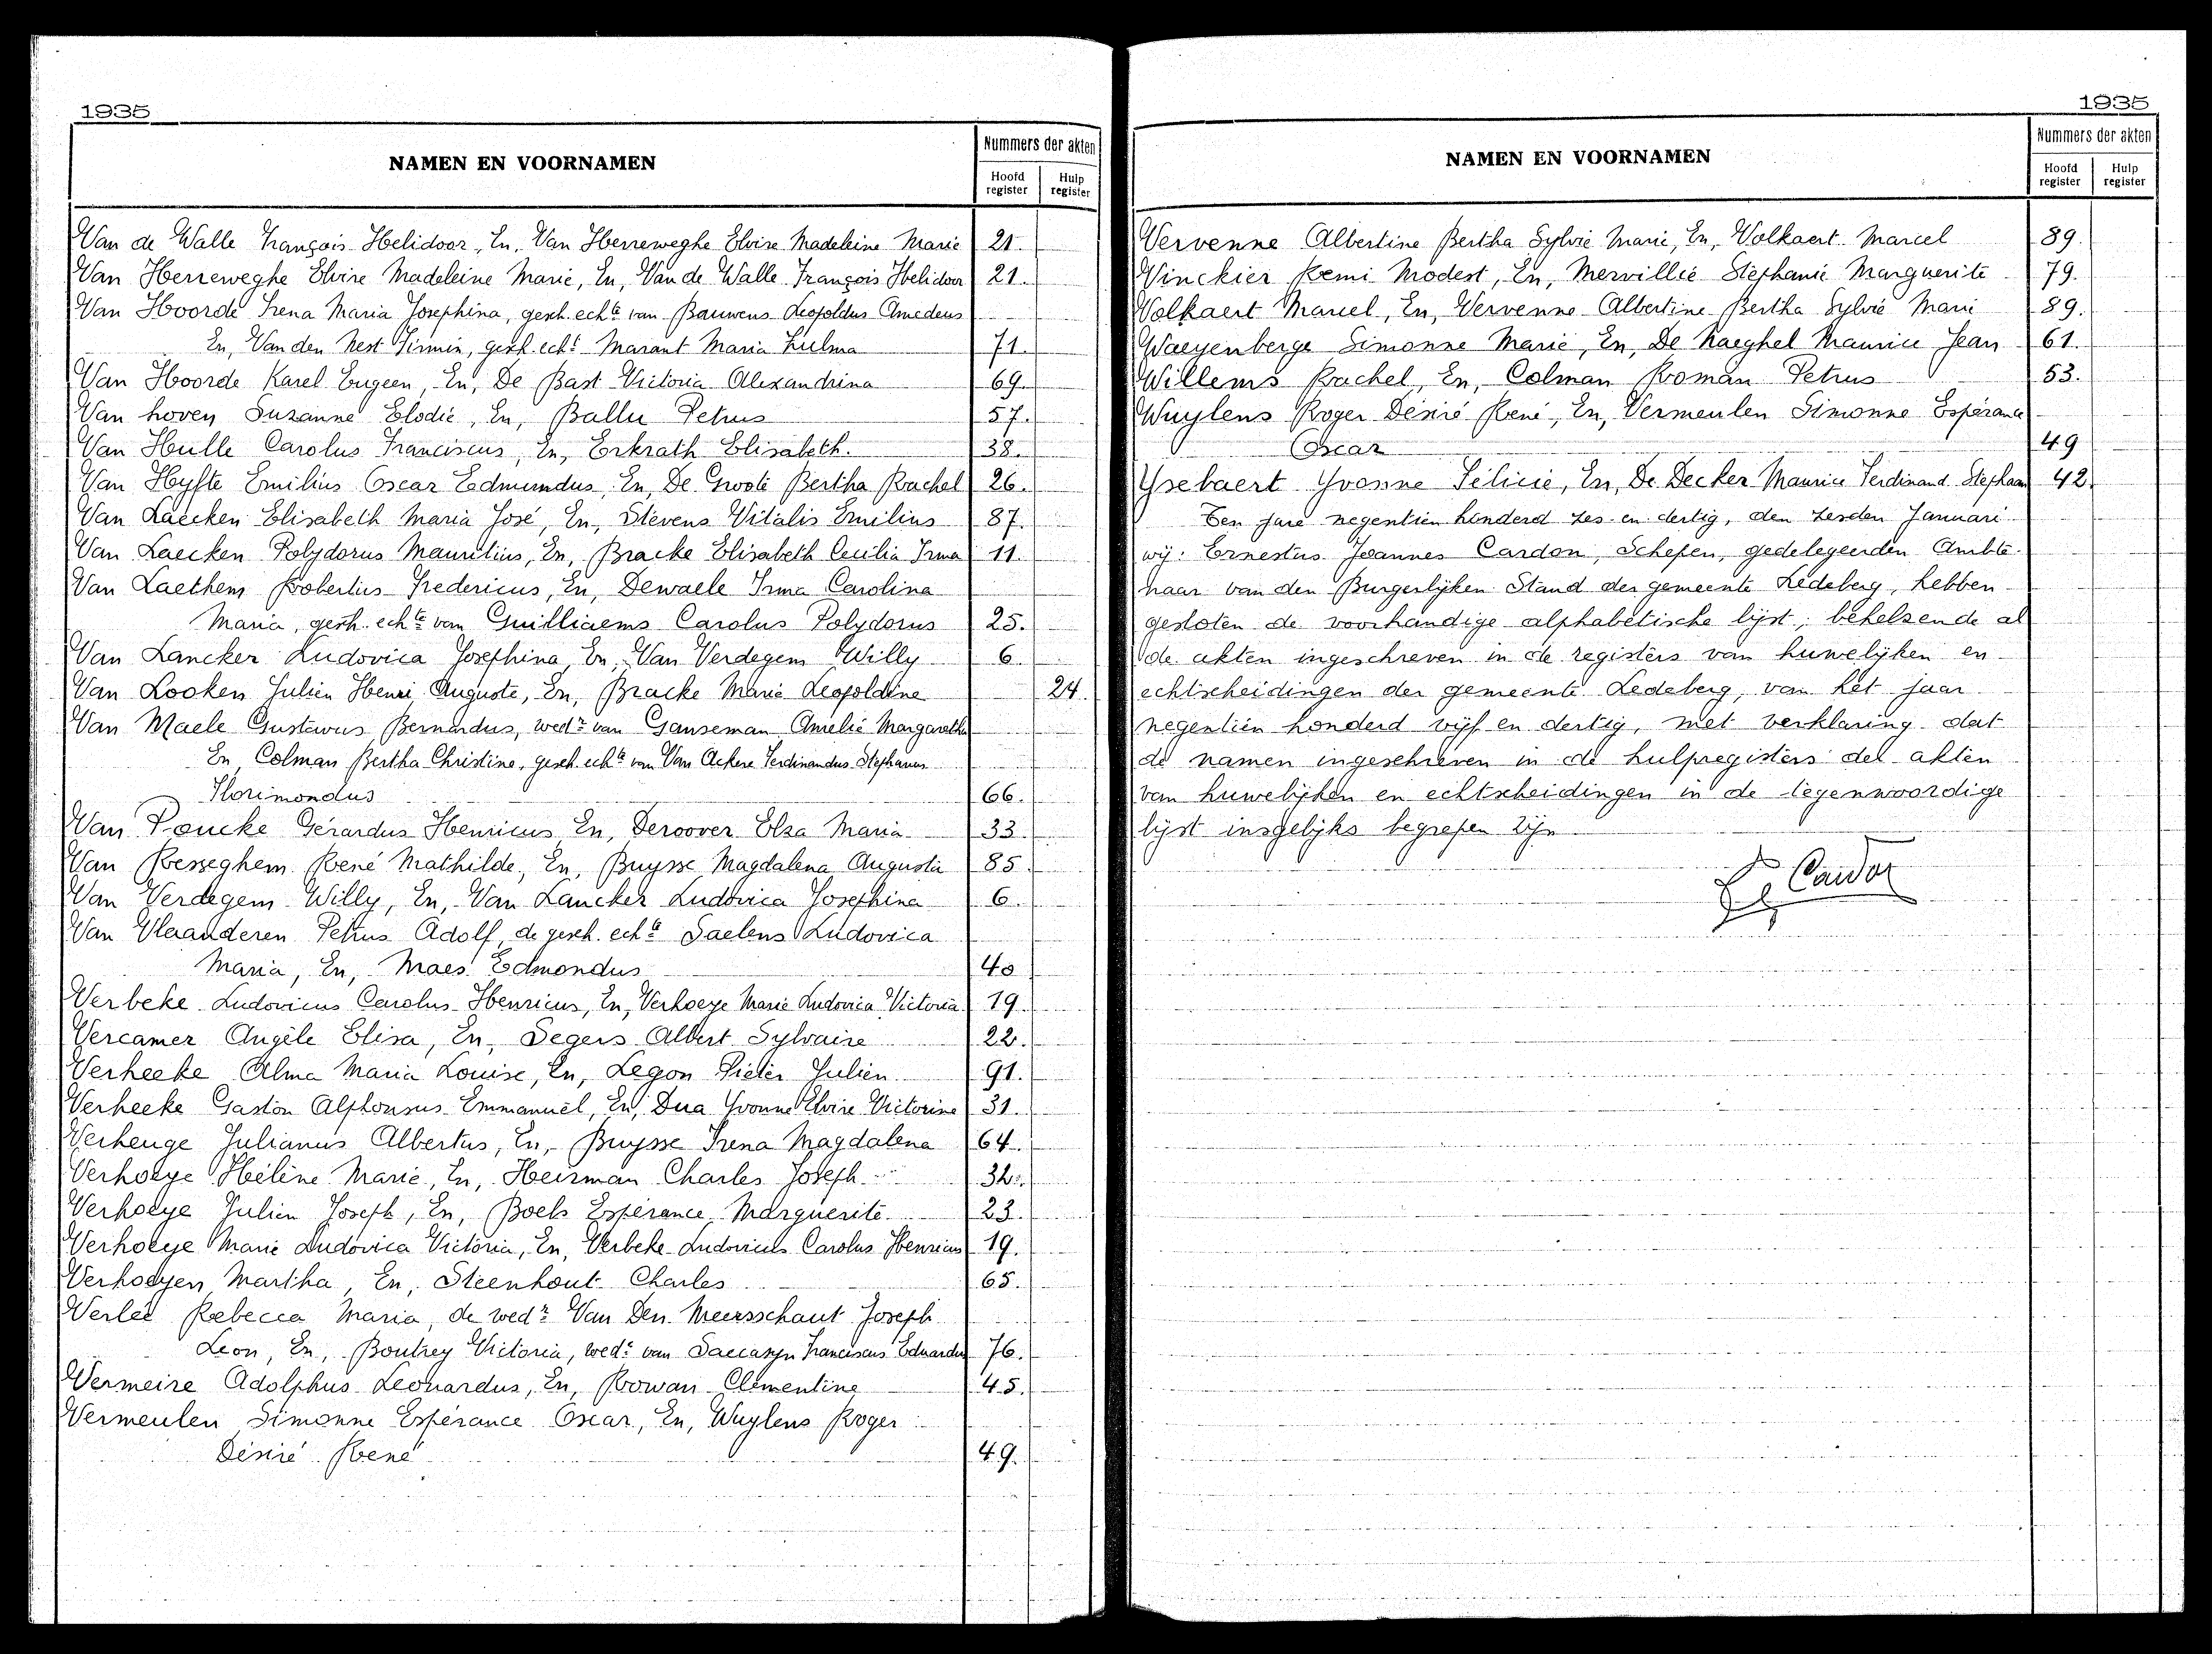 1935
NAMEN EN VOORNAMEN
Nummers der akten
Hoofd register
Hulp register
Van de Walle François Helidoor, En, Van Herreweghe Elvire Madeleine Marie 21.
Van Herreweghe Elvire Madeleine Marie, En, Van de Walle François Helidoor 21.
Van Hoorde Irena Maria Josephina, gesch. echte van Bauwens Leopoldus Amedeus
En, Van den Nest Firmin, gesch. echt Marant Maria Zulma 71.
Van Hoorde Karel Eugeen, En, De Bast Victoria Alexandrina 69.
Van hoven Suzanne Elodie, En, Ballu Petrus 57.
Van Hulle Carolus Franciscus, En, Erkrath Elisabeth. 38.
Van Hyfte Emilius Oscar Edmundus, En, De Groote Bertha Rachel 26.
Van Laecken Elisabeth Maria José, En, Stevens Vitalis Emilius 87.
Van Laecken Polydorus Mauritius, En, Bracke Elisabeth Cecilia Irma 11.
Van Laethem Robertus Fredericus, En, Dewaele Irma Carolina
Maria, gesch. echte van Guilliaems Carolus Polydorus 25.
Van Lancker Ludovica Josephina, En, Van Verdegem Willy 6.
Van Looken Julien Henri Auguste, En, Bracke Marie Leopoldine 24.
Van Maele Gustavus Bernardus, wedr van Ganseman Amelie Margaretha
En, Colman Bertha Christine, gesch. echte van Van Ackere Ferdinandus Stephanus
Florimondus 66.
Van Poucke Gérardus Henricus, En, Deroover Elza Maria 33.
Van Resseghem René Mathilde, En, Buysse Magdalena Augusta 85
Van Verdegem Willy, En, Van Lancker Ludovica Josephina 6.
Van Vlaanderen Petrus Adolf, de gesch. echte Saelens Ludovica
Maria, En, Maes Edmondus 40
Verbeke Ludovicus Carolus Henricus, En, Verhoeye Marie Ludovica Victoria 19.
Vercamer Angèle Elisa, En, Segers Albert Sylvaire 22.
Verheeke Alma Maria Louise, En, Legon Pieter Julien 91.
Verheeke Gaston Alphonsus Emmanuël, En, Dua Yvonne Elvire Victorine 31.
Verheuge Julianus Albertus, En, Buysse Irena Magdalena 64.
Verhoeye Hélène Marie, En, Heirman Charles Joseph 32.
Verhoeye Julien Joseph, En, Boels Espérance Marguerite 23.
Verhoeye Marie Ludovica Victoria, En, Verbeke Ludovicus Carolus Henricus 19.
Verhoeyen Martha, En, Steenhout Charles 65.
Verleé Rebecca Maria, de wedr Van Den Meersschaut Joseph
Leon, En, Boutrey Victoria, wede van Saccasyn Franciscus Eduardus 76.
Vermeire Adolphus Leonardus, En, Rowan Clementine 45.
Vermeulen Simonne Espérance Oscar, En, Wuylens Roger
Désiré René 49.
1935
NAMEN EN VOORNAMEN
Nummers der akten
Hoofd register
Hulp register
Vervenne Albertine Bertha Sylvie Marie, En, Volkaert Marcel 89.
Vinckier Remi Modest, En, Mervillie Stéphanie Marguerite 79.
Volkaert Marcel, En, Vervenne Albertine Bertha Sylvie Marie 89.
Waeyenberge Simonne Marie, En, De Naeghel Maurice Jean 61.
Willems Rachel, En, Colman Roman Petrus 53.
Wuylens Roger Désiré René, En, Vermeulen Simonne Espérance
Oscar 49
Ysebaert Yvonne Félicie, En, De Decker Maurice Ferdinand Stephaan 42.
Ten jare negentien honderd zes en dertig, den zesden Januari
wij: Ernestus Joannes Cardon, Schepen, gedelegeerden Ambte-
naar van den Burgerlijken Stand der gemeente Ledeberg, hebben
gesloten de voorhandige alphabetische lijst, behelzende al
de akten ingeschreven in de registers van huwelijken en
echtscheidingen der gemeente Ledeberg, van het jaar
negentien honderd vijf en dertig, met verklaring dat
de namen ingeschreven in de hulpregisters del akten
van huwelijken en echtscheidingen in de tegenwoordige
lijst insgelijks begrepen zijn
E. Cardon